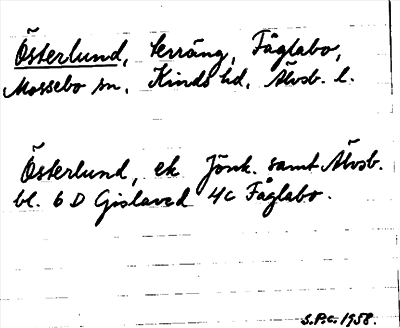 Österlund, terräng, Fåglabo,
Mossebo sn, Kinds hd, Älvsb. l.
Österlund, ek Jönk. samt Älvsb.
bl. 6 D Gislaved 4c Fåglabo.
S.P.C. 1958.